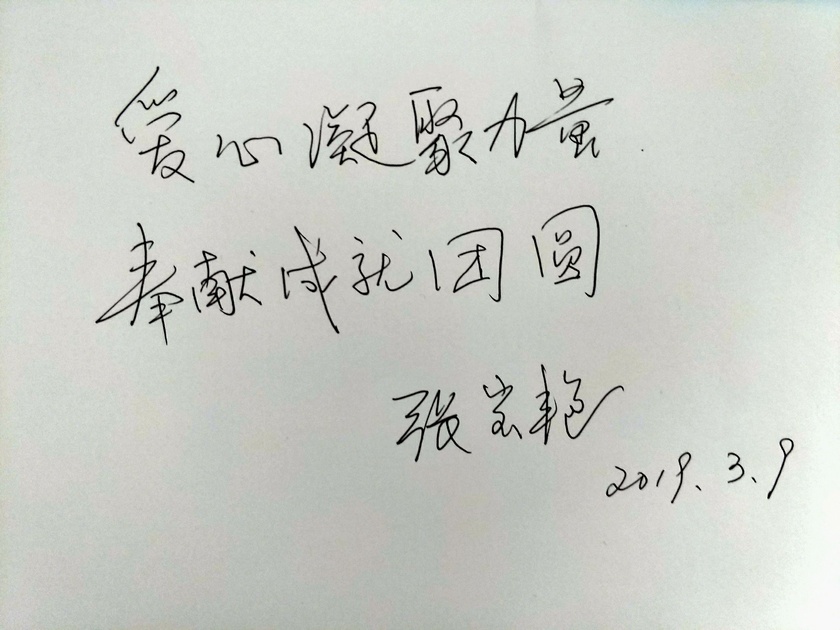 爱心凝聚力量
奉献成就团圆
张宝艳
2019.3.9